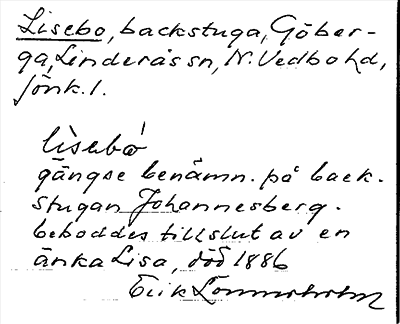 Lisebo, backstuga, Göber-
ga, Linderås sn, N. Vedbo hd,
Jönk. l.
lìsebὼ
gängse benämn. på back-
stugan Johannesberg.
beboddes till slut av en
änka Lisa, död 1886
Erik